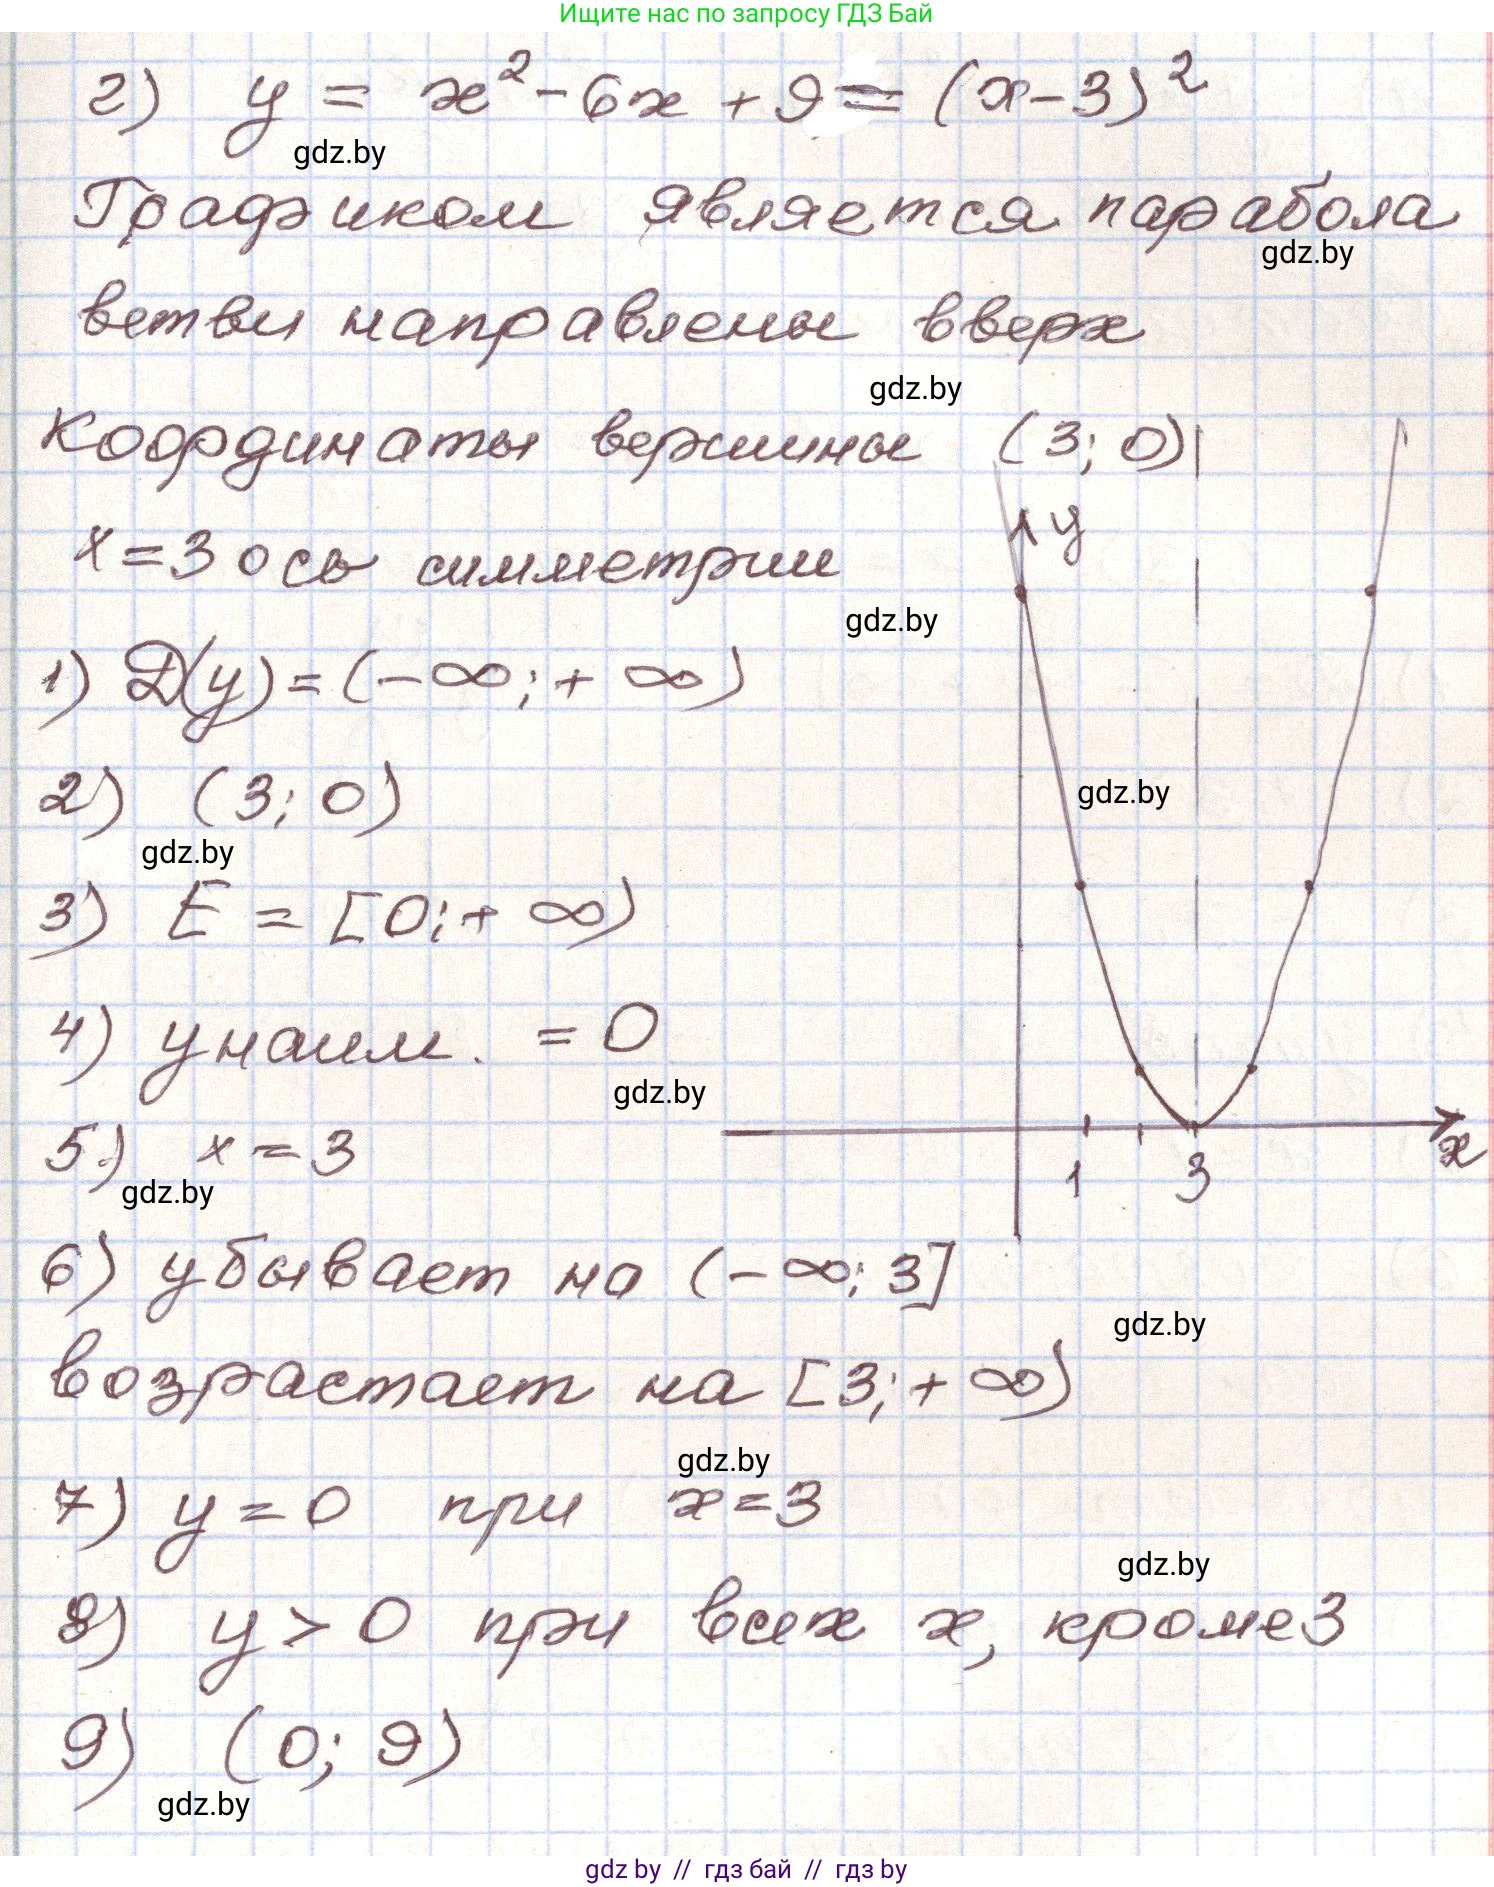 Ищите нас по запросу ГДЗ Бай
г) y = x² - 6x + 9 = (x - 3)²
gdz.by
Графиком является парабола
gdz.by
ветви направлены вверх
gdz.by
Координаты вершины (3; 0)
y
x = 3 ось симметрии
gdz.by
1) D(y) = (-∞; +∞)
2) (3; 0)
gdz.by
gdz.by
3) E = [0; +∞)
4) y наим. = 0
gdz.by
5) x = 3
x
1 3
gdz.by
6) убывает на (-∞; 3]
gdz.by
возрастает на [3; +∞)
gdz.by
7) y = 0 при x = 3
gdz.by
8) y > 0 при всех x, кроме 3
9) (0; 9)
gdz.by
gdz by // гдз бай // гдз by